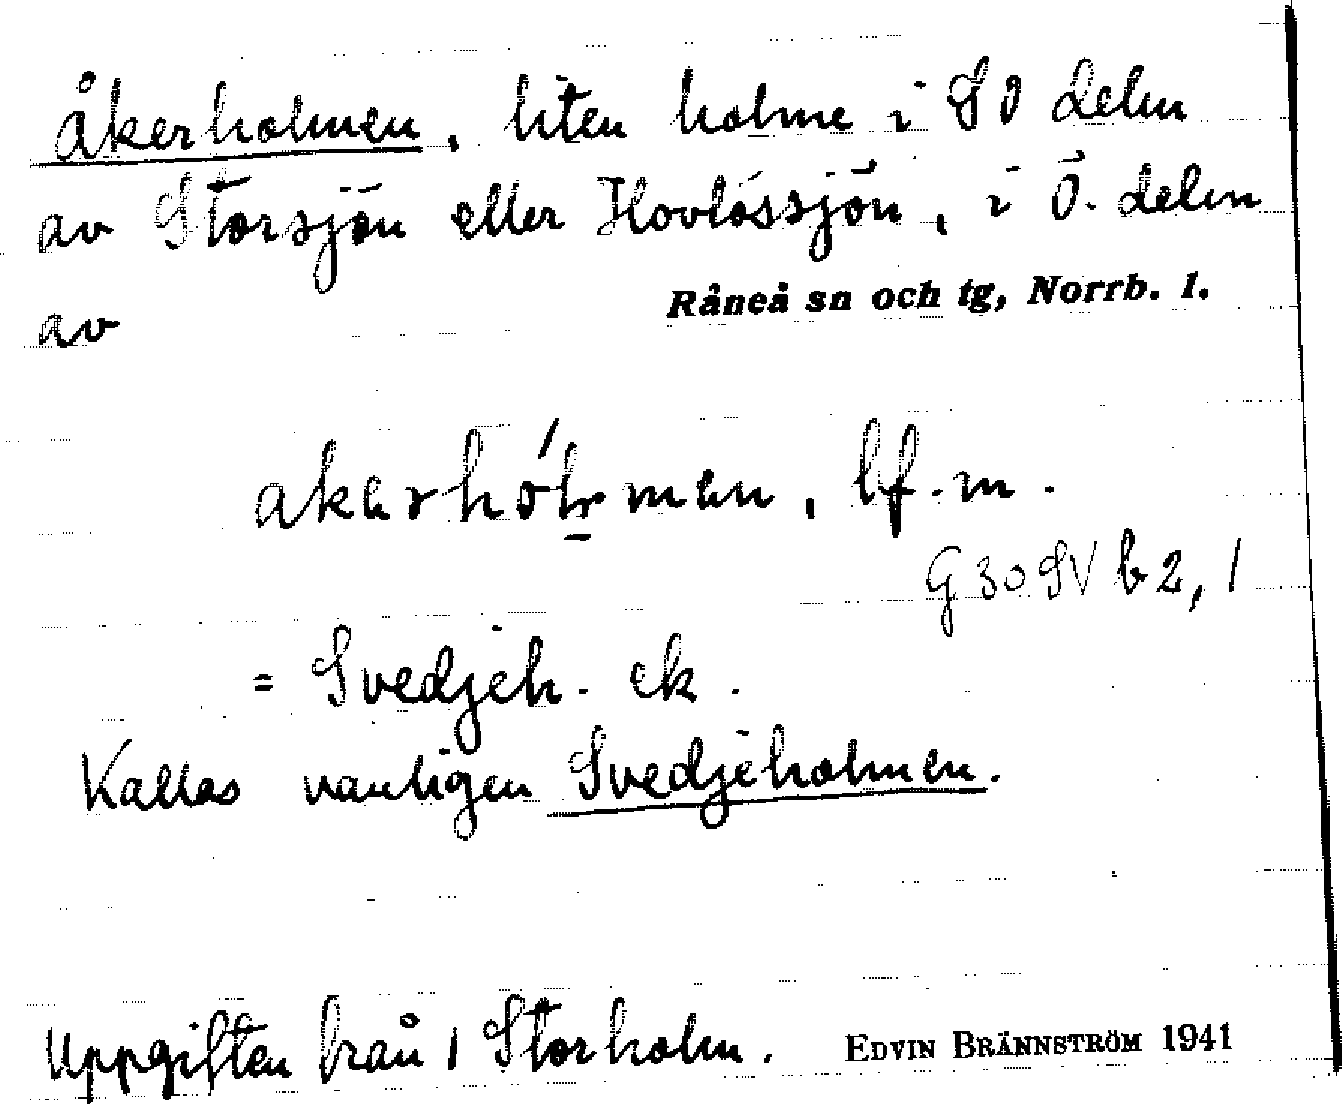 Åkerholmen, liten holme i SO delen
av Storsjön eller Hovlössjön, i Ö. delen
av Råneå sn och tg, Norrb. l.
bf. m.
G 30 SV b 2, 1
= Svedjeh. ek.
Kallas vanligen Svedjeholmen.
Uppgiften från 1 Storholm. EDVIN BRÄNNSTRÖM 1941